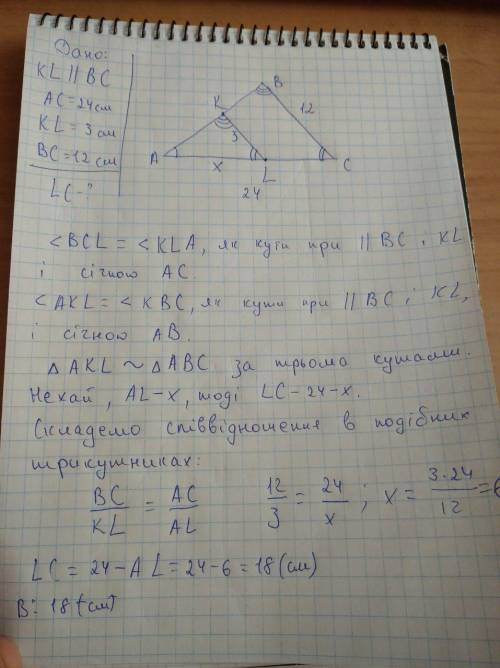 Дано:
KL || BC
AC = 24 см
KL = 3 см
BC = 12 см
LC - ?
B
K
12
3
A
x
L
C
24
<BCL = <KLA, як кути при || BC i KL
і січною AC.
<AKL = <KBC, як кути при || BC i KL,
і січною AB.
△AKL ~ △ABC за трьома кутами.
Нехай, AL - x, тоді LC - 24 - x.
Складемо співвідношення в подібних
трикутниках:
BC/KL = AC/AL 12/3 = 24/x; x = 3·24/12 = 6
LC = 24 - AL = 24 - 6 = 18 (см)
В: 18 (см)